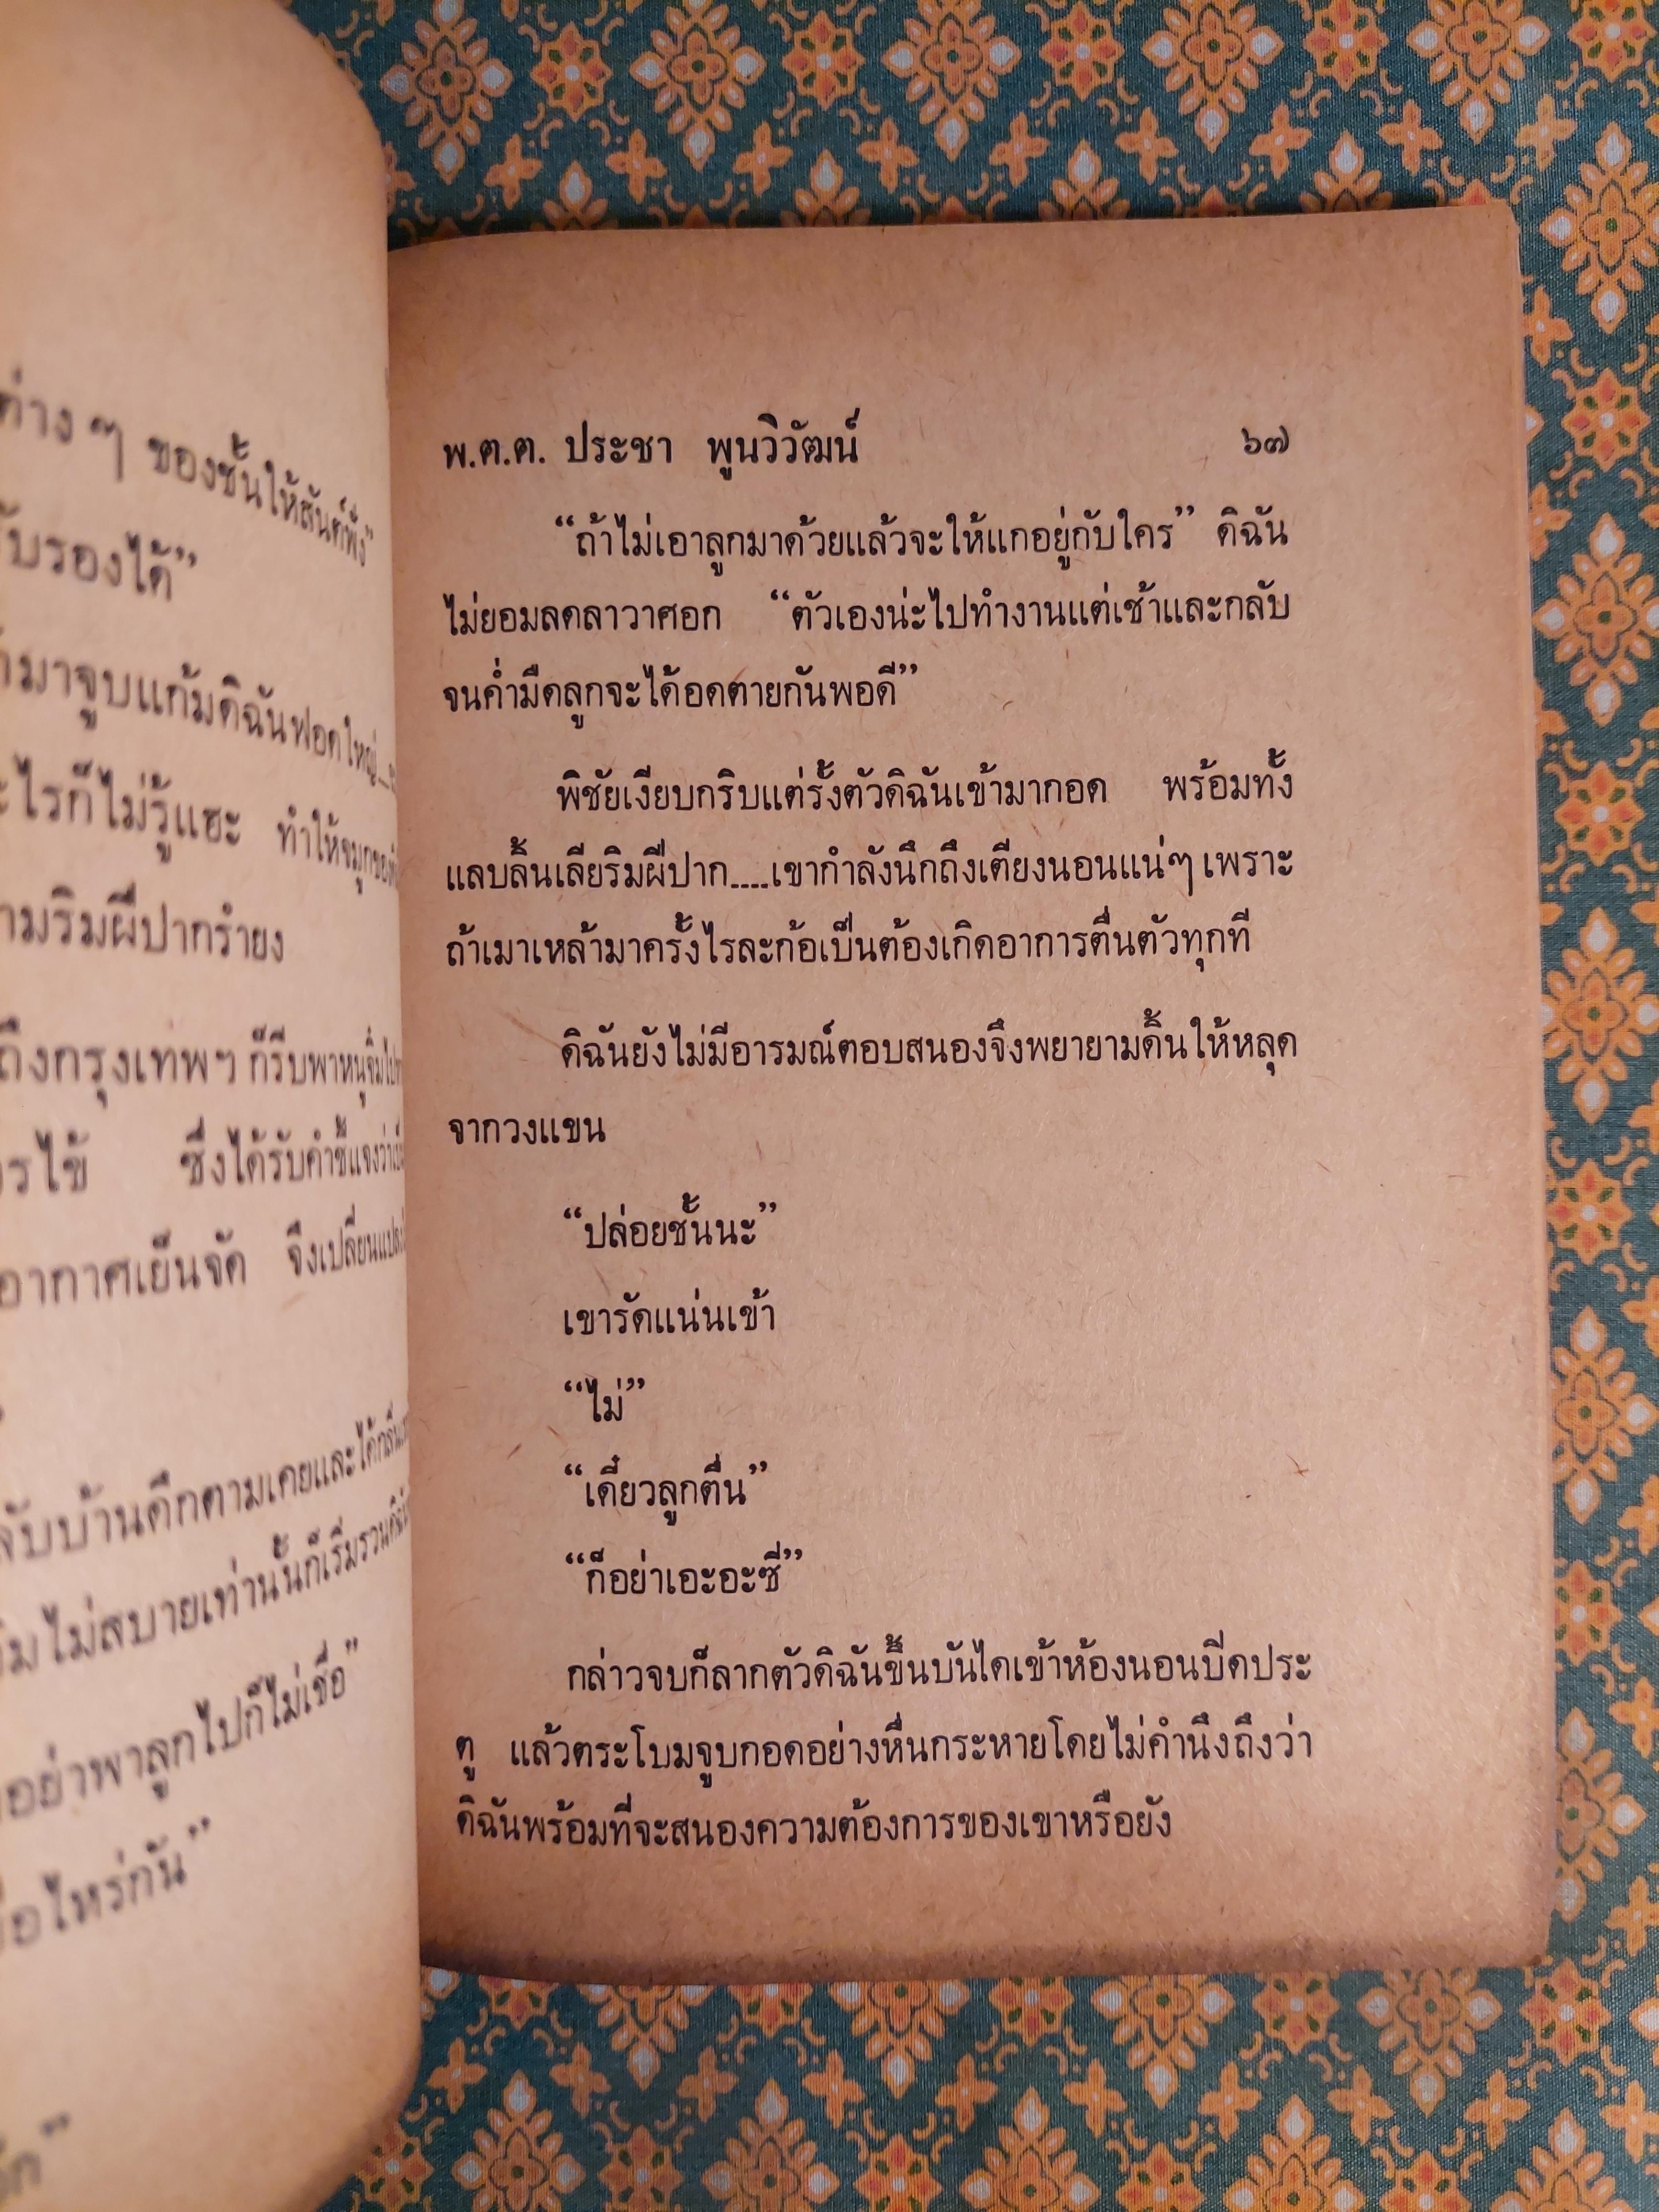 ต่าง ๆ ของชั้นให้สันต์ฟัง”
รองได้”
มาจูบแก้มดิฉันฟอดใหญ่
ไรก็ไม่รู้แฮะ ทำให้จมูก
ริมฝีปากรำยง
ถึงกรุงเทพฯ ก็รีบพาหนูจิ๋ม
ไข้ ซึ่งได้รับคำชี้แจงว่า
อากาศเย็นจัด จึงเปลี่ยน
บ้านดึกตามเคยและได้
ไม่สบายเท่านั้นก็เริ่ม
อย่าพาลูกไปก็ไม่เชื่อ”
ไหร่กัน”
พ.ต.ต. ประชา พูนวิวัฒน์ ๖๗
“ถ้าไม่เอาลูกมาด้วยแล้วจะให้แกอยู่กับใคร” ดิฉัน
ไม่ยอมลดลาวาศอก “ตัวเองน่ะไปทำงานแต่เช้าและกลับ
จนค่ำมืดลูกจะได้อดตายกันพอดี”
พิชัยเงียบกริบแต่รั้งตัวดิฉันเข้ามากอด พร้อมทั้ง
แลบลิ้นเลียริมฝีปาก....เขากำลังนึกถึงเตียงนอนแน่ๆ เพราะ
ถ้าเมาเหล้ามาครั้งไรละก้อเป็นต้องเกิดอาการตื่นตัวทุกที
ดิฉันยังไม่มีอารมณ์ตอบสนองจึงพยายามดิ้นให้หลุด
จากวงแขน
“ปล่อยชั้นนะ”
เขารัดแน่นเข้า
“ไม่”
“เดี๋ยวลูกตื่น”
“ก็อย่าเอะอะซี”
กล่าวจบก็ลากตัวดิฉันขึ้นบันไดเข้าห้องนอนปิดประ
ตู แล้วตระโบมจูบกอดอย่างหื่นกระหายโดยไม่คำนึงถึงว่า
ดิฉันพร้อมที่จะสนองความต้องการของเขาหรือยัง